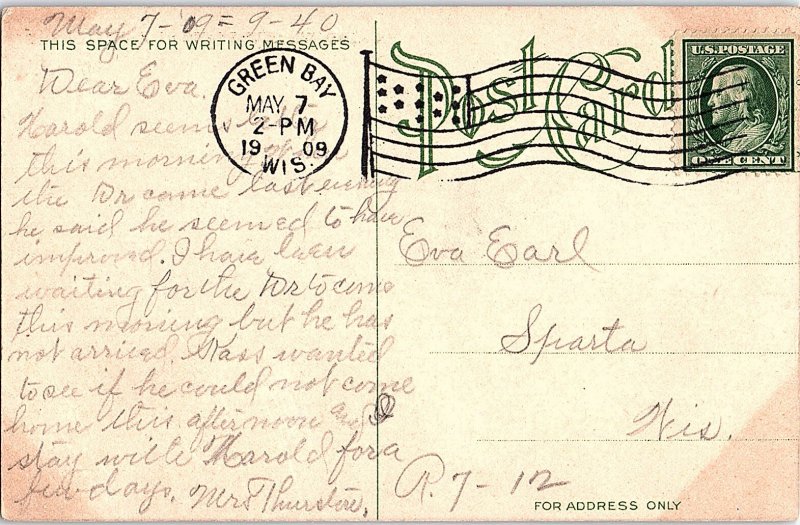 May 7-'09 = 9-40
THIS SPACE FOR WRITING MESSAGES
Dear Eva.
Harold seems
this morning
the Dr came last evening
he said he seemed to have
improved. I have been
waiting for the Dr to come
this morning but he has
not arrived. wanted
to see if he could not come
home this afternoon and
stay with Harold for a
few days. Mrs Thurston.
GREEN BAY
MAY 7
2-PM
1909
WIS.
Post Card
U.S. POSTAGE
ONE CENT
Eva Earl
Sparta
Wis.
R. 7-12
FOR ADDRESS ONLY